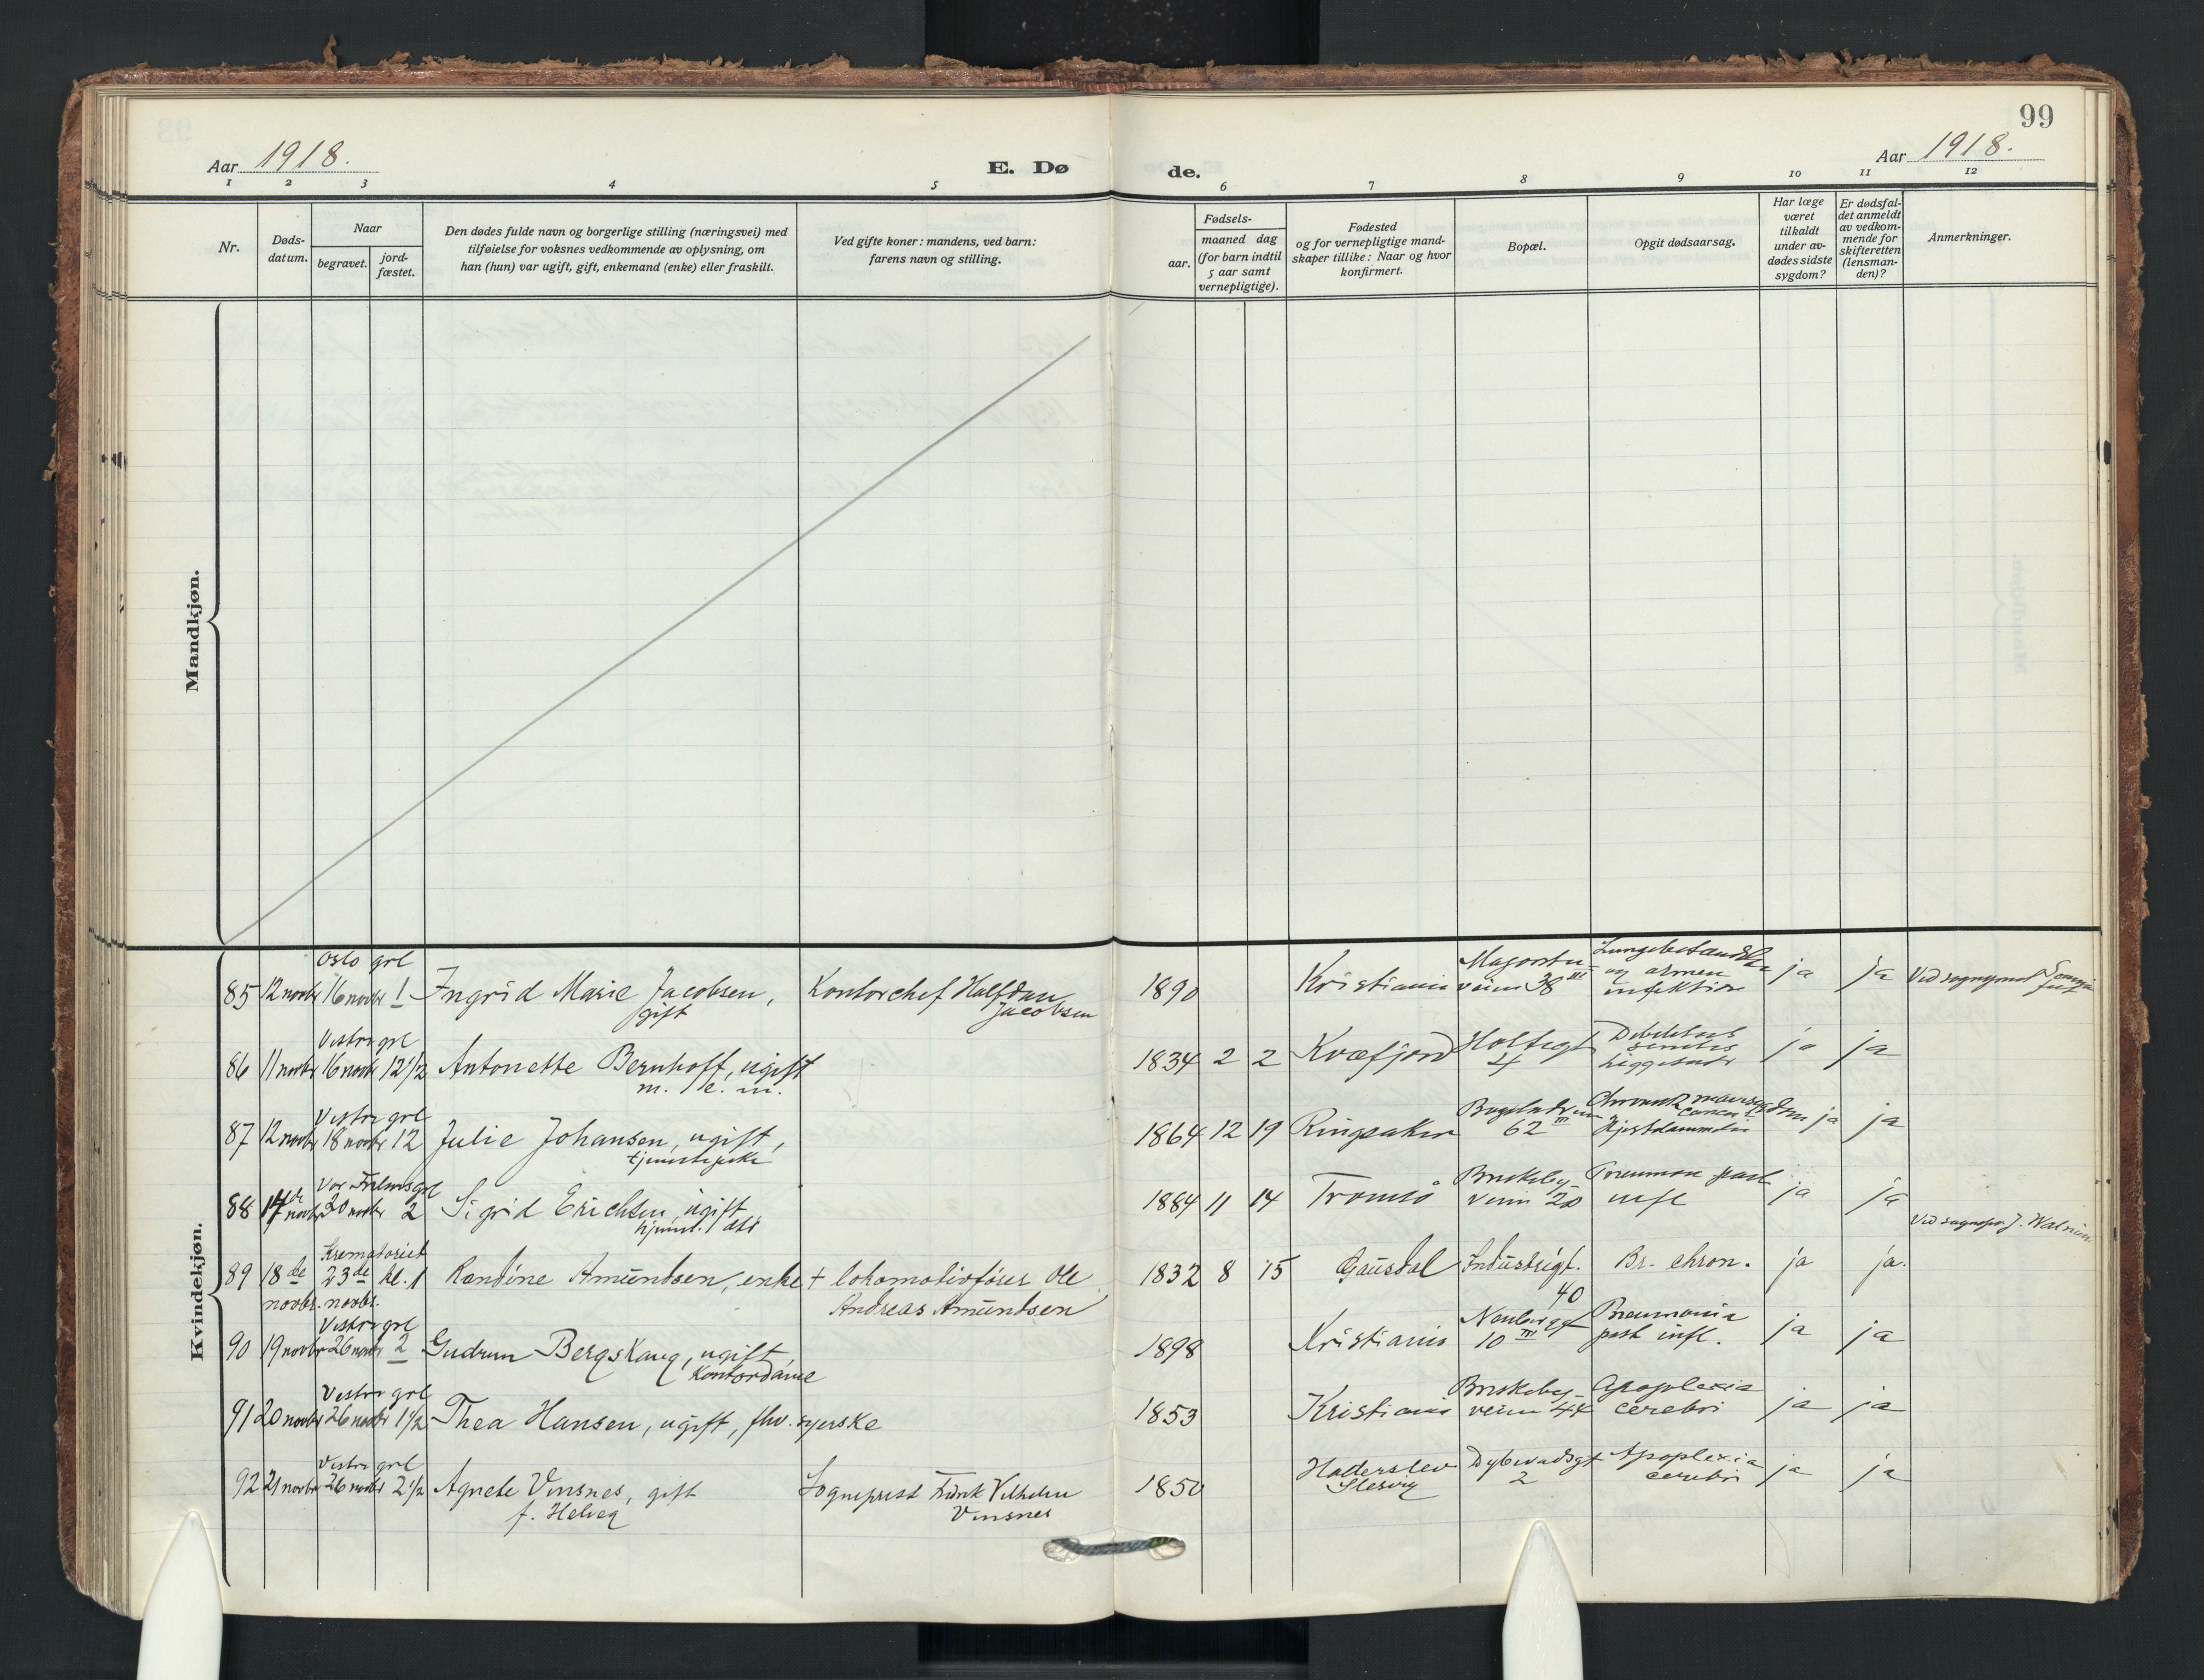 99
Aar 1918.
E. Døde.
Aar 1918.
1 2 3 4 5 6 7 8 9 10 11 12
Nr.
Døds-
datum.
Naar
begravet.
jord-
fæstet.
Den dødes fulde navn og borgerlige stilling (næringsvei) med
tilføielse for voksnes vedkommende av oplysning, om
han (hun) var ugift, gift, enkemand (enke) eller fraskilt.
Ved gifte koner: mandens, ved barn:
farens navn og stilling.
Fødsels-
aar.
maaned dag
(for barn indtil
5 aar samt
vernepligtige).
Fødested
og for vernepligtige mand-
skaper tillike: Naar og hvor
konfirmert.
Bopæl.
Opgit dødsaarsag.
Har læge
været
tilkaldt
under av-
dødes sidste
sygdom?
Er dødsfal-
det anmeldt
av vedkom-
mende for
skifteretten
(lensman-
den)?
Anmerkninger.
Mandkjøn.
Kvindekjøn.
Oslo grl
85 12 novbr 16 novbr 1 Ingrid Marie Jacobsen, Kontorchef Halfdan 1890 Kristiania
gift Jacobsen
veien 38 III
infektion
ja ja
Vestre grl
86 11 novbr 16 novbr 12 1/2 Antonette Bernhoft, ugift 1834 2 2 Kvæfjord Holtegt
m. l. m.
4
ja ja
Vestre grl
87 12 novbr 18 novbr 12 Julie Johansen, ugift, 1864 12 19 Ringsaker
62 III
ja ja
Vor Frelsers grl
88 novbr 20 novbr 2 Sigrid Erichsen, ugift 1884 11 14 Tromsø
Briskeby-
veien 20
infl
ja ja
Krematoriet
89 18de 23de kl. 1 Randine Amundsen, enke + lokomotivfører Ole 1832 8 15 Gausdal Industrigt. Br. chron. ja ja.
novbr. novbr. Andreas Amundsen 40
Vestre grl
90 19 novbr 26 novbr 2 Gudrun Bergskaug, ugift, 1898 Kristiania
kontordame
10 III
Pneumonia
post infl.
ja ja
Vestre grl
91 20 novbr 26 novbr 1 1/2 Thea Hansen, ugift, fhv. syerske 1853 Kristiania
Briskeby-
veien 44
Apoplexia
cerebri
ja ja
Vestre grl
92 21 novbr 26 novbr 2 1/2 Agnete Vinsnes, gift Sogneprest Fredrik Vilhelm 1850 Haderslev
f. Helveg Vinsnes Slesvig
Dybwadsgt
2
Apoplexia
cerebri
ja ja